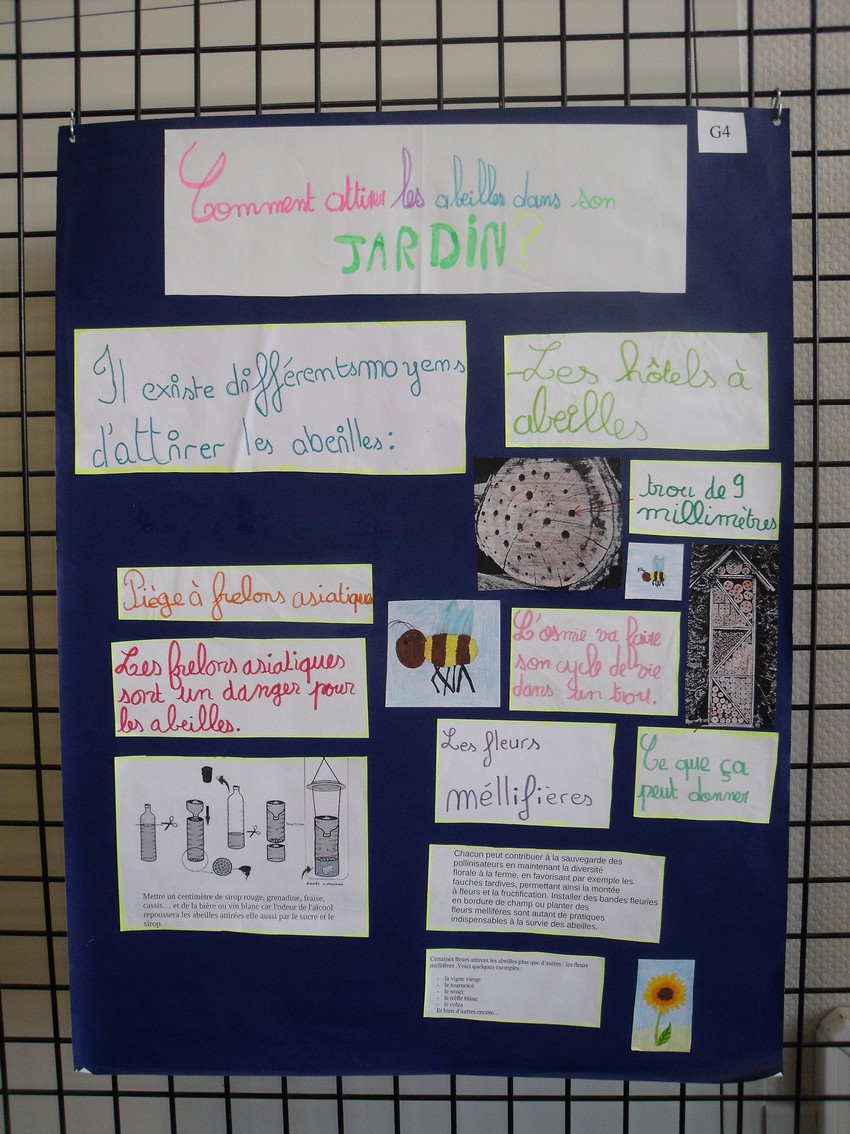 G4
Comment attirer les abeilles dans son
JARDIN?
Il existe différents moyens
d'attirer les abeilles:
-Les hôtels à
abeilles
trou de 9
millimètres
Piège à frelons asiatiques
Les frelons asiatiques
sont un danger pour
les abeilles.
L'osmie va faire
son cycle de vie
dans un trou.
Les fleurs
méllifières
Ce que ça
peut donner
Mettre un centimètre de sirop rouge, grenadine, fraise,
cassis… et de la bière ou vin blanc car l'odeur de l'alcool
repoussera les abeilles attirées elle aussi par le sucre et le
sirop.
Chacun peut contribuer à la sauvegarde des
pollinisateurs en maintenant la diversité
florale à la ferme, en favorisant par exemple les
fauches tardives, permettant ainsi la montée
à fleurs et la fructification. Installer des bandes fleuries
en bordure de champ ou planter des
fleurs mellifères sont autant de pratiques
indispensables à la survie des abeilles.
Certaines fleurs attirent les abeilles plus que d'autres : les fleurs
mellifères .Vous quelques exemples :
- la vigne vierge
- le tournesol
- le souci
- le trèfle blanc
- le colza
Et bien d'autres encore…